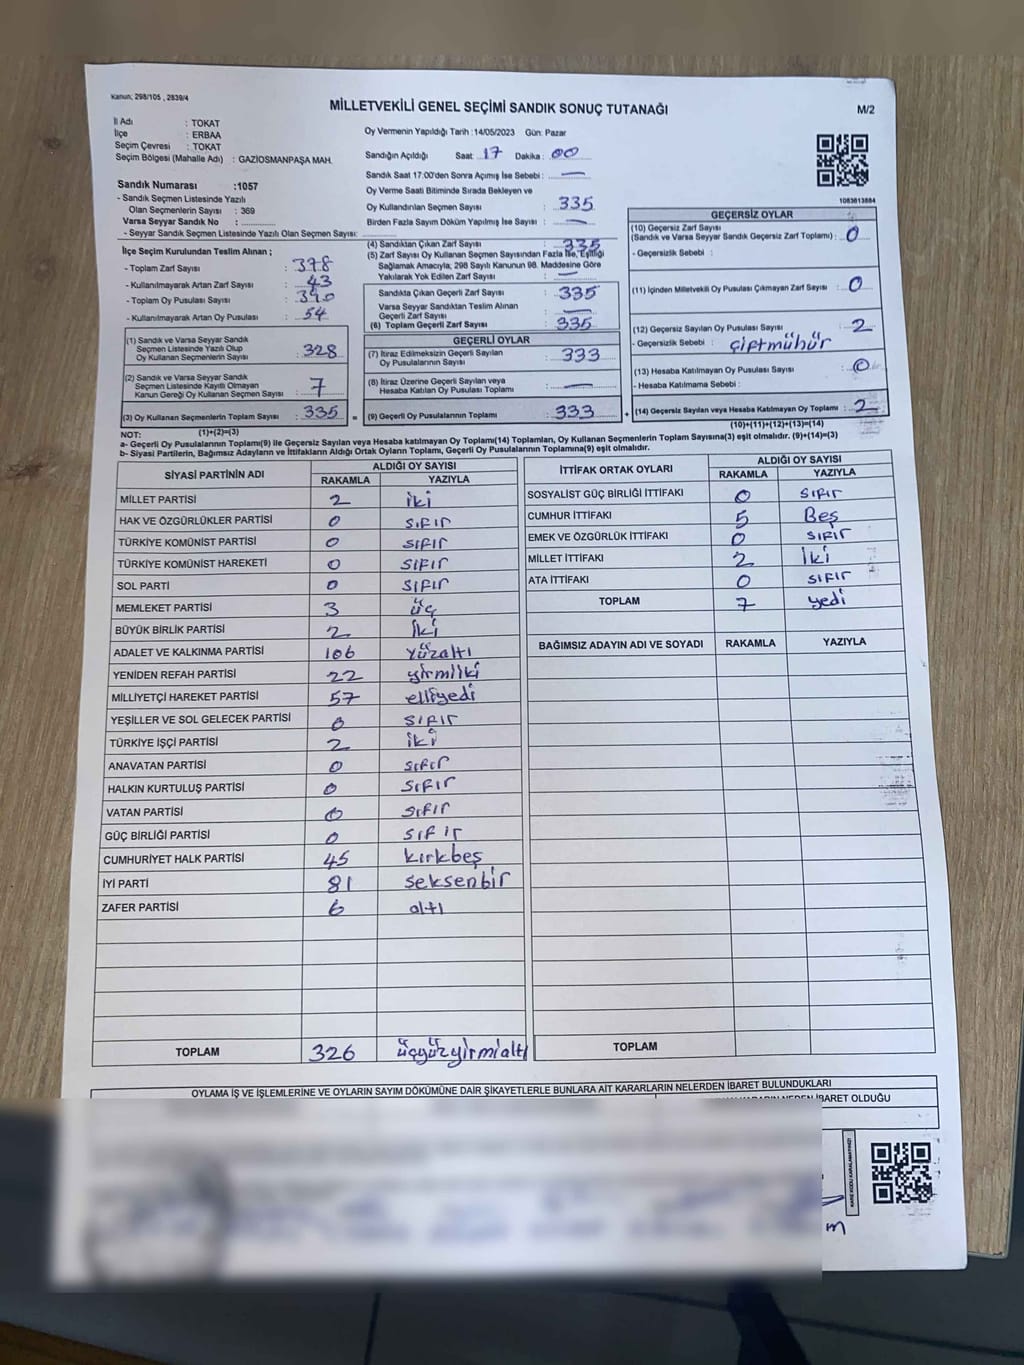 Kanun, 298/105 , 2839/4
MİLLETVEKİLİ GENEL SEÇİMİ SANDIK SONUÇ TUTANAĞI
M/2
İl Adı : TOKAT
İlçe : ERBAA
Seçim Çevresi : TOKAT
Seçim Bölgesi (Mahalle Adı) : GAZİOSMANPAŞA MAH.
Oy Vermenin Yapıldığı Tarih :14/05/2023 Gün: Pazar
Sandığın Açıldığı Saat: 17 Dakika : 00
Sandık Saat 17.00'den Sonra Açılmış İse Sebebi : —
Oy Verme Saati Bitiminde Sırada Bekleyen ve
Oy Kullandırılan Seçmen Sayısı : 335
Birden Fazla Sayım Döküm Yapılmış İse Sayısı : —
1083613884
Sandık Numarası :1057
- Sandık Seçmen Listesinde Yazılı
Olan Seçmenlerin Sayısı : 369
Varsa Seyyar Sandık No :
- Seyyar Sandık Seçmen Listesinde Yazılı Olan Seçmen Sayısı:
İlçe Seçim Kurulundan Teslim Alınan ;
- Toplam Zarf Sayısı : 378
- Kullanılmayarak Artan Zarf Sayısı : 43
- Toplam Oy Pusulası Sayısı :
- Kullanılmayarak Artan Oy Pusulası : 54
(1) Sandık ve Varsa Seyyar Sandık
Seçmen Listesinde Yazılı Olup
Oy Kullanan Seçmenlerin Sayısı : 328
(2) Sandık ve Varsa Seyyar Sandık
Seçmen Listesinde Kayıtlı Olmayan
Kanun Gereği Oy Kullanan Seçmen Sayısı : 7
(3) Oy Kullanan Seçmenlerin Toplam Sayısı : 335
(1)+(2)=(3)
(4) Sandıktan Çıkan Zarf Sayısı : 335
(5) Zarf Sayısı Oy Kullanan Seçmen Sayısından Fazla İse, Eşitliği
Sağlamak Amacıyla, 298 Sayılı Kanunun 98. Maddesine Göre
Yakılarak Yok Edilen Zarf Sayısı : —
Sandıkta Çıkan Geçerli Zarf Sayısı : 335
Varsa Seyyar Sandıktan Teslim Alınan
Geçerli Zarf Sayısı : —
(6) Toplam Geçerli Zarf Sayısı : 335
GEÇERLİ OYLAR
(7) İtiraz Edilmeksizin Geçerli Sayılan
Oy Pusulalarının Sayısı : 333
(8) İtiraz Üzerine Geçerli Sayılan veya
Hesaba Katılan Oy Pusulası Toplamı : —
= (9) Geçerli Oy Pusulalarının Toplamı : 333
GEÇERSİZ OYLAR
(10) Geçersiz Zarf Sayısı
(Sandık ve Varsa Seyyar Sandık Geçersiz Zarf Toplamı) : 0
- Geçersizlik Sebebi :
(11) İçinden Milletvekili Oy Pusulası Çıkmayan Zarf Sayısı : 0
(12) Geçersiz Sayılan Oy Pusulası Sayısı : 2
- Geçersizlik Sebebi : çiftmühür
(13) Hesaba Katılmayan Oy Pusulası Sayısı : 0
- Hesaba Katılmama Sebebi :
+ (14) Geçersiz Sayılan veya Hesaba Katılmayan Oy Toplamı : 2
(10)+(11)+(12)+(13)=(14)
NOT:
a- Geçerli Oy Pusulalarının Toplamı(9) ile Geçersiz Sayılan veya Hesaba katılmayan Oy Toplamı(14) Toplamları, Oy Kullanan Seçmenlerin Toplam Sayısına(3) eşit olmalıdır. (9)+(14)=(3)
b- Siyasi Partilerin, Bağımsız Adayların ve İttifakların Aldığı Ortak Oyların Toplamı, Geçerli Oy Pusulalarının Toplamına(9) eşit olmalıdır.
SİYASİ PARTİNİN ADI ALDIĞI OY SAYISI
RAKAMLA YAZIYLA
MİLLET PARTİSİ 2 iki
HAK VE ÖZGÜRLÜKLER PARTİSİ 0 sıfır
TÜRKİYE KOMÜNİST PARTİSİ 0 sıfır
TÜRKİYE KOMÜNİST HAREKETİ 0 sıfır
SOL PARTİ 0 sıfır
MEMLEKET PARTİSİ 3 üç
BÜYÜK BİRLİK PARTİSİ 2 iki
ADALET VE KALKINMA PARTİSİ 106 yüzaltı
YENİDEN REFAH PARTİSİ 22 yirmiiki
MİLLİYETÇİ HAREKET PARTİSİ 57 elliyedi
YEŞİLLER VE SOL GELECEK PARTİSİ 0 sıfır
TÜRKİYE İŞÇİ PARTİSİ 2 iki
ANAVATAN PARTİSİ 0 sıfır
HALKIN KURTULUŞ PARTİSİ 0 sıfır
VATAN PARTİSİ 0 sıfır
GÜÇ BİRLİĞİ PARTİSİ 0 sıfır
CUMHURİYET HALK PARTİSİ 45 kırkbeş
İYİ PARTİ 81 seksenbir
ZAFER PARTİSİ 6 altı
TOPLAM 326 üçyüzyirmialtı
İTTİFAK ORTAK OYLARI ALDIĞI OY SAYISI
RAKAMLA YAZIYLA
SOSYALİST GÜÇ BİRLİĞİ İTTİFAKI 0 sıfır
CUMHUR İTTİFAKI 5 Beş
EMEK VE ÖZGÜRLÜK İTTİFAKI 0 sıfır
MİLLET İTTİFAKI 2 İki
ATA İTTİFAKI 0 sıfır
TOPLAM 7 yedi
BAĞIMSIZ ADAYIN ADI VE SOYADI RAKAMLA YAZIYLA
TOPLAM
OYLAMA İŞ VE İŞLEMLERİNE VE OYLARIN SAYIM DÖKÜMÜNE DAİR ŞİKAYETLERLE BUNLARA AİT KARARLARIN NELERDEN İBARET BULUNDUKLARI
İBARET OLDUĞU
KARE KODU KARALAMAYINIZ!